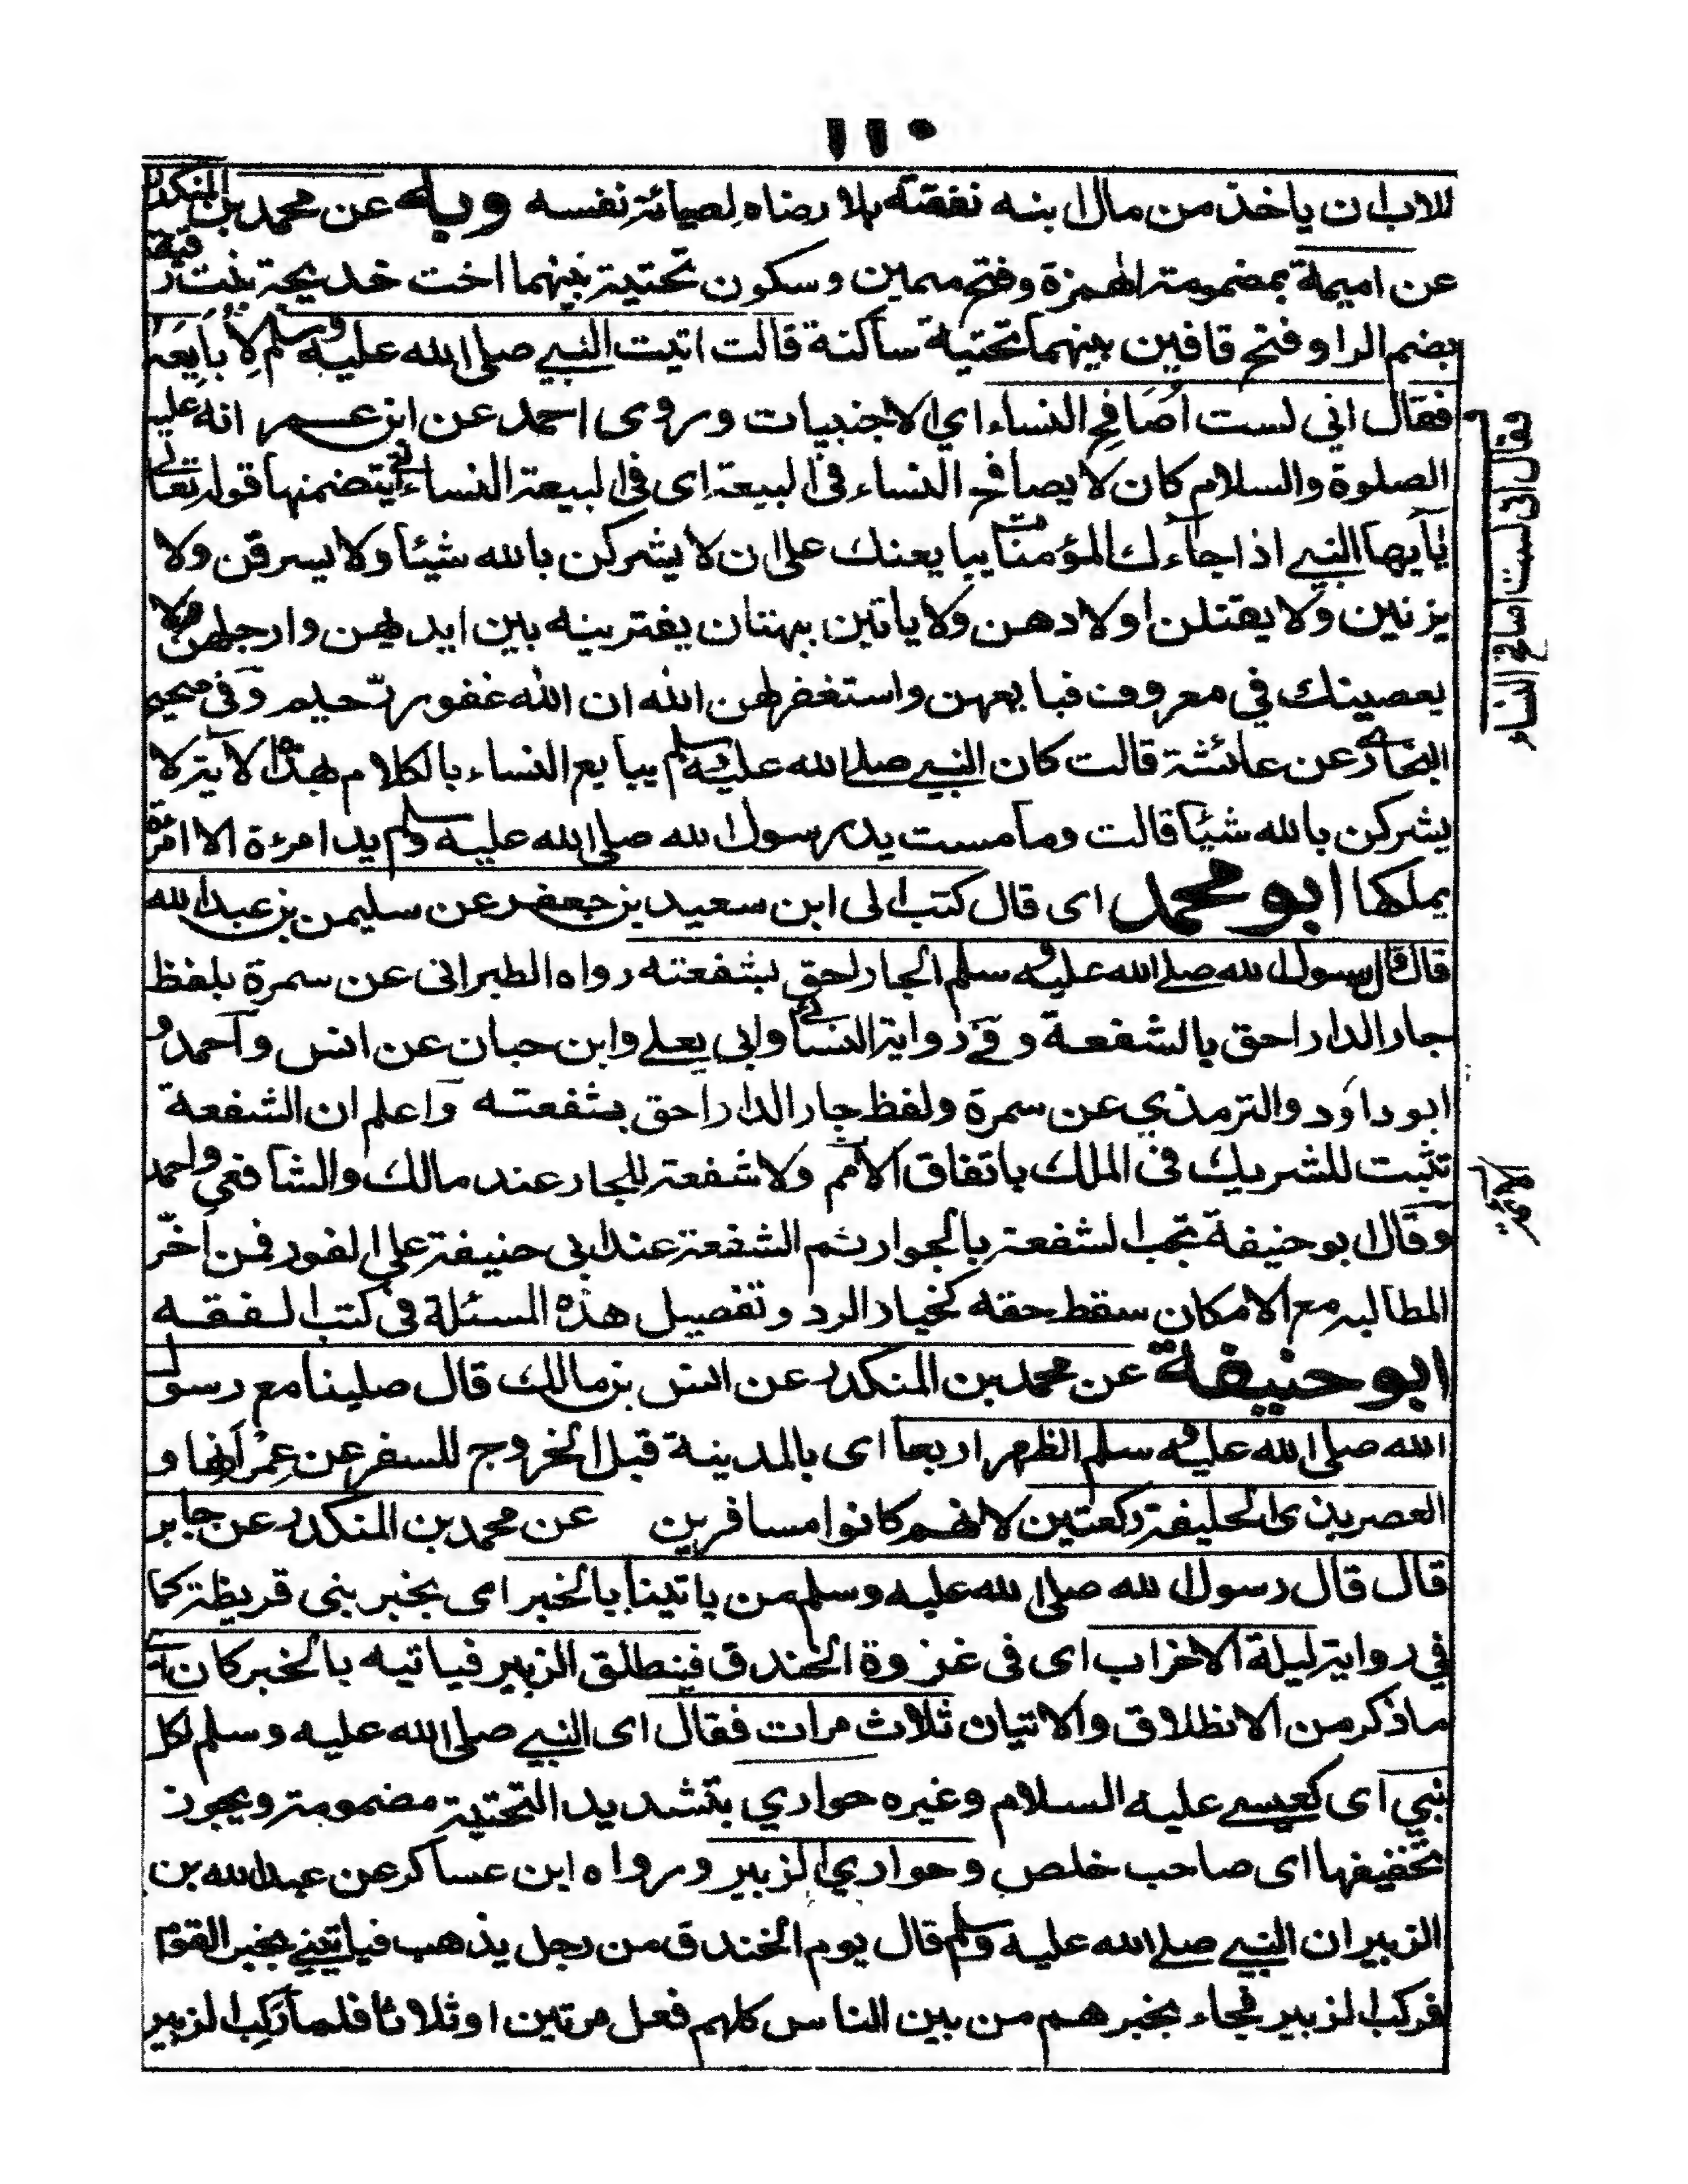 ١١٠
للاب ان ياخذ من مال ابنه نفقته بلا رضاه لصيانة نفسه وبه عن محمد بن المنكدر
عن اميمة بمضمومة الهمزة وفتح ميمين وسكون تحتية بينهما اخت خديجة بنت رقيقة
بضم الرا وفتح قافين بينهما تحتية ساكنة قالت اتيت النبي صلى الله عليه وسلم لِاُبَايِعَهُ
فقال اني لست اُصَافِح النساء اي الاجنبيات وروى احمد عن ابن عمر انه عليه
الصلوة والسلام كان لا يصافح النساء في البيعة اى في البيعة النساء يتضمنها قوله تعالى
يٰٓايها النبي اذا جآءك المؤمنٰت يبايعنك على ان لا يشركن بالله شيئا ولا يسرقن ولا
يزنين ولا يقتلن اولادهن ولا ياتين ببهتان يفترينه بين ايديهن وارجلهن ولا
يعصينك في معروف فبايعهن واستغفر لهن الله ان الله غفور رّحيم وفي صحيح
البخاري عن عائشة قالت كان النبي صلى الله عليه وسلم يبايع النساء بالكلام بهذه الاية لا
يشركن بالله شيئا قالت وما مست يد رسول الله صلى الله عليه وسلم يد امرءة الا امرءة
يملكها ابو محمد اى قال كتب الى ابن سعيد بن جعفر عن سليمن بن عبد الله
قال قال رسول الله صلى الله عليه وسلم الجار احق بشفعته رواه الطبرانى عن سمرة بلفظ
جار الدار احق بالشفعة وفي رواية النسائي وابي يعلى وابن حبان عن انس وآحمد و
ابو داود والترمذي عن سمرة ولفظ جار الدار احق بشفعته وآعلم ان الشفعة
تثبت للشريك في الملك باتفاق الأمم ولا شفعة للجار عند مالك والشافعي واحمد
وقال ابو حنيفة تجب الشفعة بالجوار ثم الشفعة عند ابى حنيفة على الفور فمن اخّر
المطالبه مع الامكان سقط حقه كخيار الرد وتفصيل هذه المسئلة في كتب الفقه
ابو حنيفة عن محمد بن المنكدر عن انس بن مالك قال صلينا مع رسول
الله صلى الله عليه وسلم الظهر اربعا اى بالمدينة قبل الخروج للسفر عن عمرانها و
العصر بذى الحليفة ركعتين لانهم كانوا مسافرين عن محمد بن المنكدر عن جابر
قال قال رسول الله صلى الله عليه وسلم من ياتينا بالخبر اى بخبر بنى قريظة كما
في رواية ليلة الاخراب اى في غزوة الخندق فينطلق الزبير فياتيه بالخبر كان
ماذكر من الانطلاق والاتيان ثلاث مرات فقال اى النبي صلى الله عليه وسلم لكل
نبي اى كعيسى عليه السلام وغيره حواري بتشديد التحتية مضمومة ويجوز
تخفيفها اى صاحب خلص وحواري الزبير ورواه ابن عساكر عن عبد الله بن
الزبير ان النبي صلى الله عليه وسلم قال يوم الخندق من رجل يذهب فياتيني بخبر القوم
فركب الزبير فجاء بخبرهم من بين الناس كلهم فعل مرتين او ثلاثا فلما ركب الزبير
فقال انى لست اصافح النساء
الأئمة